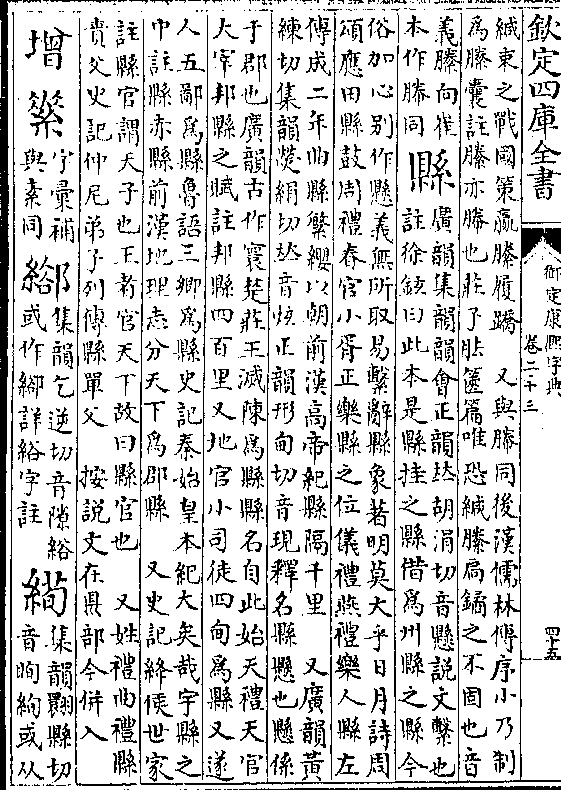 欽定四庫全書
御定康熙字典
卷二十三
四十五
緘束之戰國策羸縢履蹻　又與滕同後漢儒林傳序小乃制
為縢囊註縢亦幐也莊子胠篋篇唯恐緘縢扃鐍之不固也音
義縢向崔
本作幐同縣廣韻集韻韻會正韻𠀤胡涓切音懸說文繫也
註徐鉉曰此本是縣挂之縣借為州縣之縣今
俗加心别作懸義無所取易繫辭縣象著明莫大乎日月詩周
頌應田縣鼓周禮春官小胥正樂縣之位儀禮燕禮樂人縣左
傳成二年曲縣繁纓以朝前漢高帝紀縣隔千里　又廣韻黃
練切集韻熒絹切𠀤音炫正韻形甸切音現釋名縣懸也懸係
于郡也廣韻古作寰楚莊王滅陳為縣縣名自此始天禮天官
大宰邦縣之賦註邦縣四百里又地官小司徒四甸為縣又遂
人五鄙為縣魯語三鄉為縣史記秦始皇本紀大矣哉宇縣之
中註縣赤縣前漢地理志分天下為郡縣　又史記絳侯世家
註縣官謂天子也王者官天下故曰縣官也　又姓禮曲禮縣
賁父史記仲尼弟子列傳縣單父　按說文在𥄉部今併入
增䋤字彙補
與素同𦃹集韻乞逆切音隙綌
或作𦃹詳綌字註絢集韻翾縣切
音眴絢或从